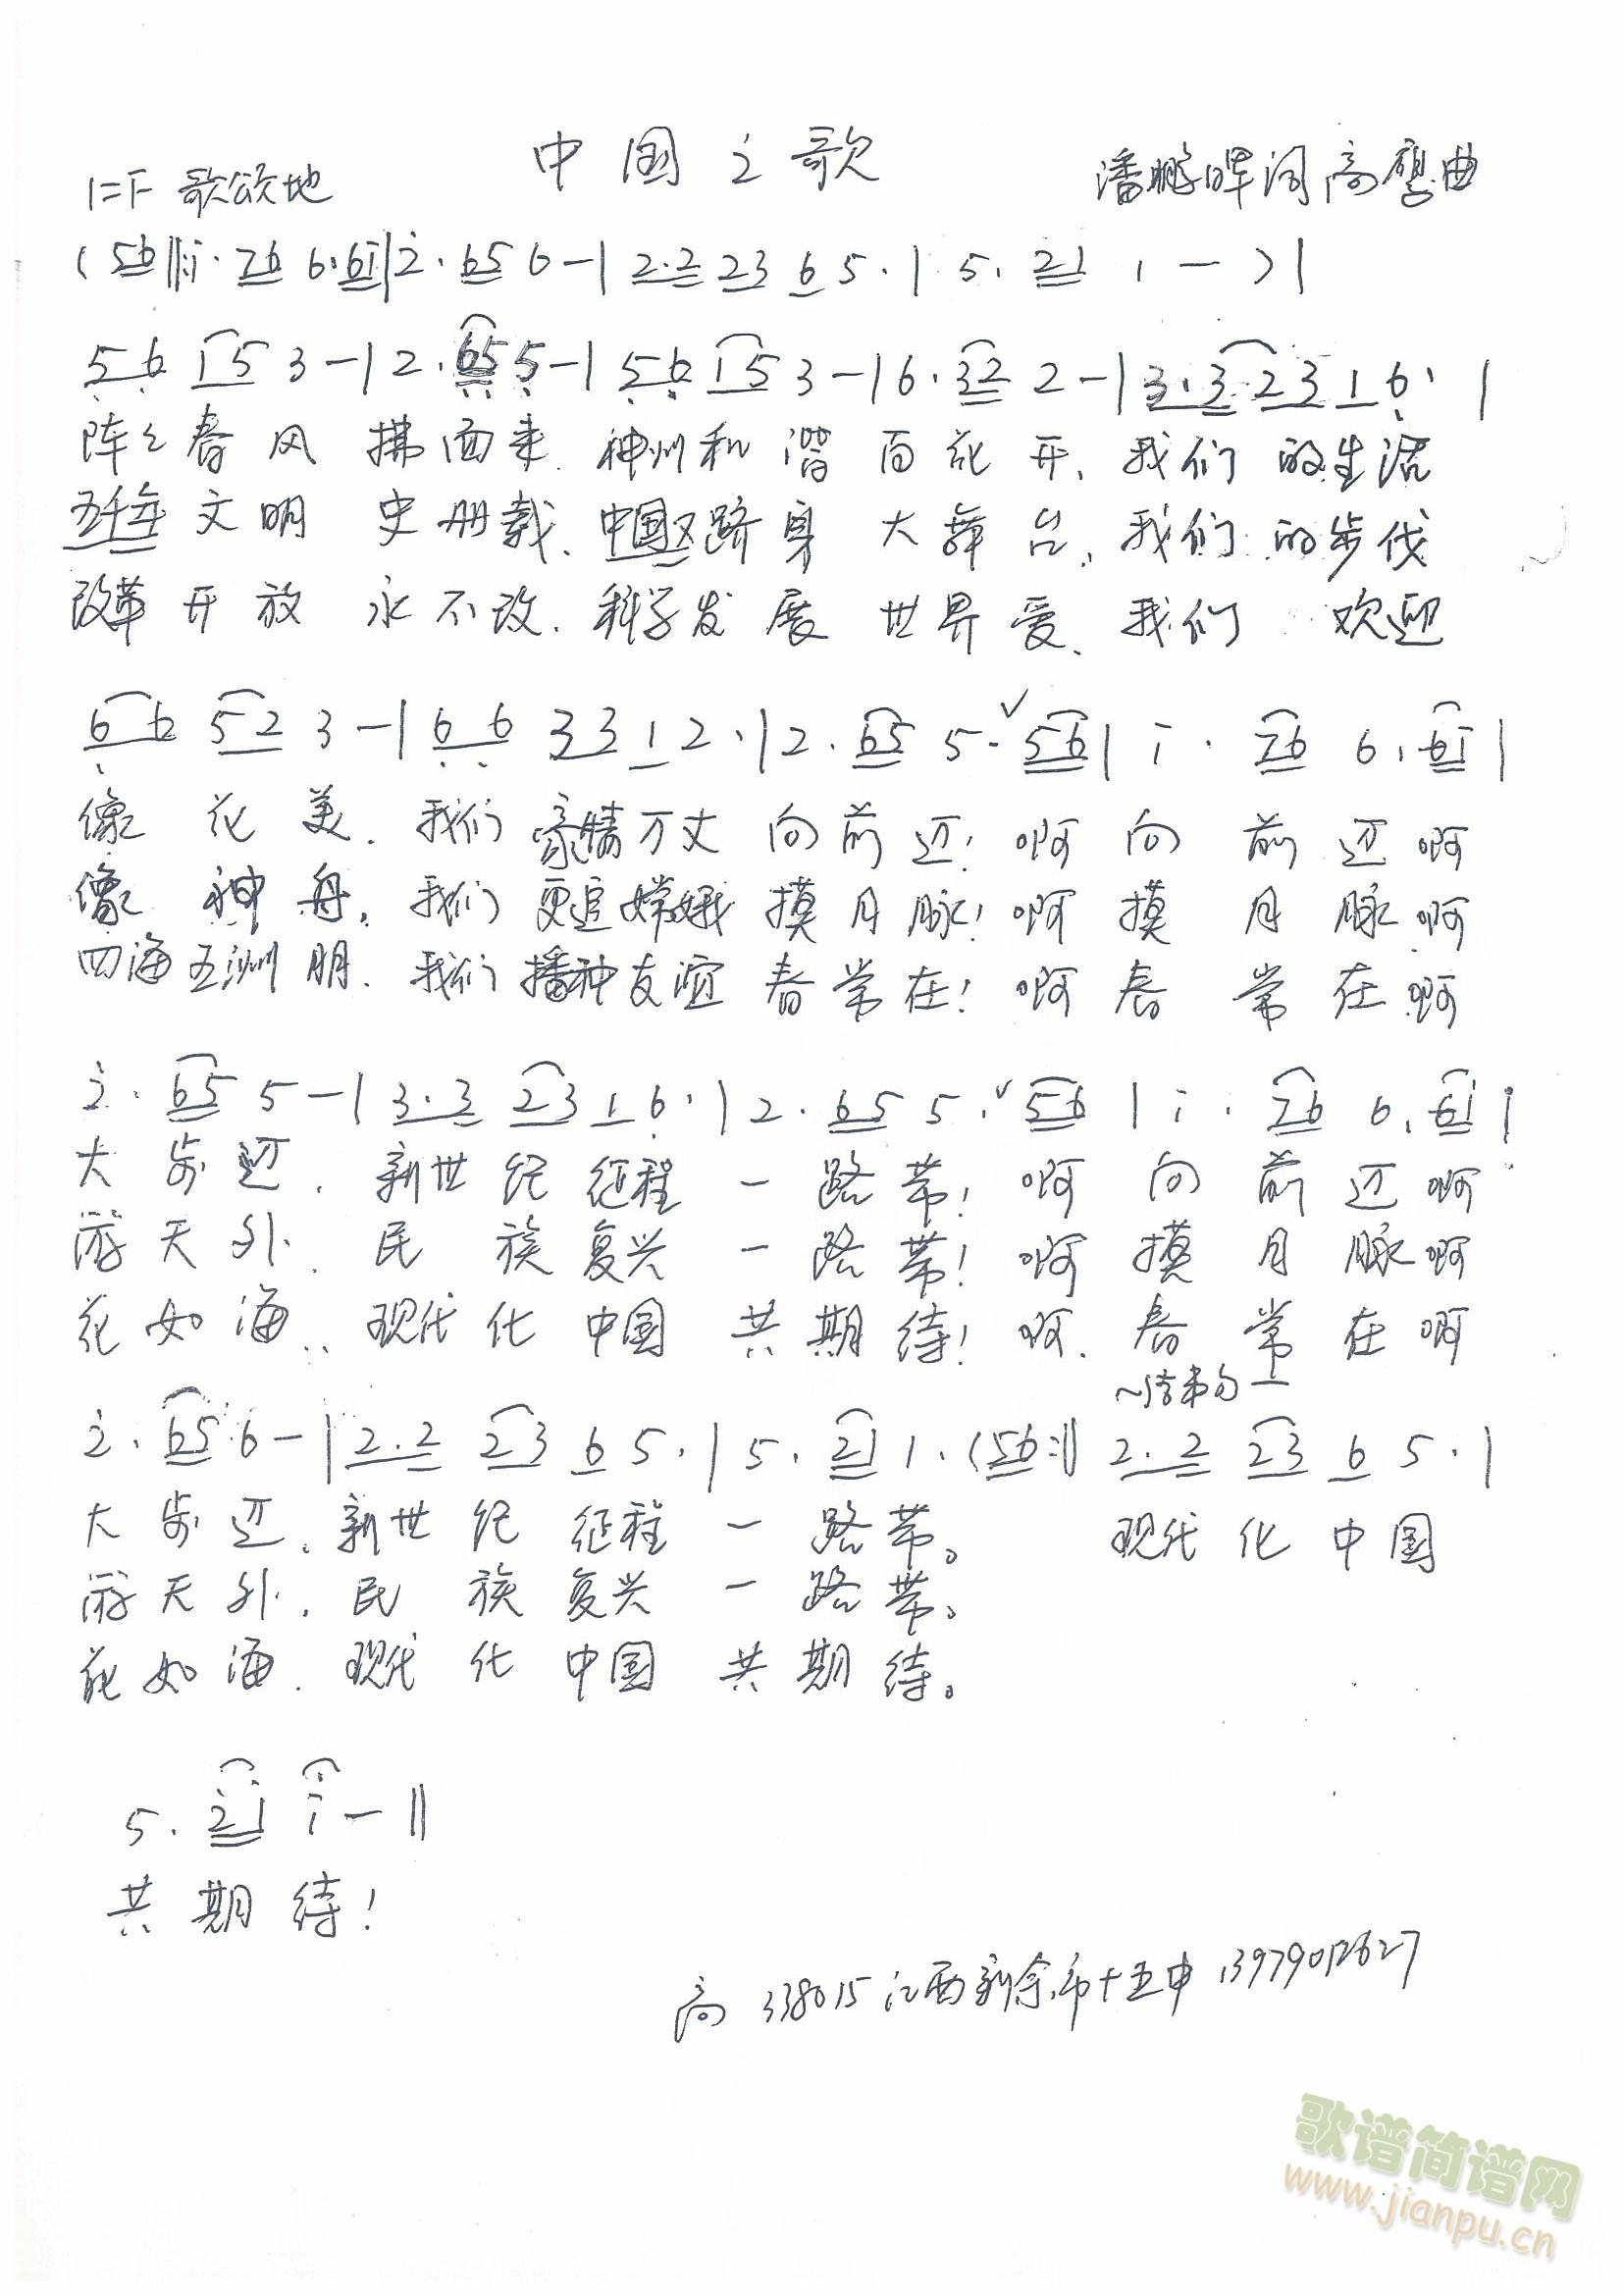 中国之歌
1=F 歌颂地 潘鹏晖词 高鹰曲
( 56 ‖: i· 76 6· 6i | 2· 65 6 — | 2·2 23 6 5· | 5· 21 1 — ) |
5 6 15 3 — | 2· 65 5 — | 5 6 15 3 — | 6· 32 2 — | 3·3 23 1 6· |
阵々春风 拂面来、神州和谐 百花开、我们的生活
五千年文明 史册载、中国又跻身 大舞台、我们的步伐
改革开放 永不改、科学发展 世界爱、我们 欢迎
6 6 52 3 — | 6 6 33 1 2· | 2· 65 5· ✓ 56 | i · 76 6· 6i |
像花美、我们豪情万丈向前迈!啊向前迈啊
像神舟、我们更追嫦娥摸月脉!啊摸月脉啊
四海五洲朋、我们播种友谊春常在!啊春常在啊
2· 65 5 — | 3·3 23 1 6· | 2· 65 5· ✓ 56 | i · 76 6· 6i |
大步迈、新世纪征程一路带!啊向前迈啊
游天外、民族复兴一路带!啊摸月脉啊
花如海、现代化中国共期待!啊、春常在啊
结束句
2· 65 6 — | 2·2 23 6 5· | 5· 21 1· (56 :‖ 2·2 23 6 5· |
大步迈、新世纪征程一路带。 现代化中国
游天外、民族复兴一路带。
花如海、现代化中国共期待。
5· 21 i — ‖
共期待!
高 338015 江西新余市十五中 13979012627
歌谱简谱网
www.jianpu.cn